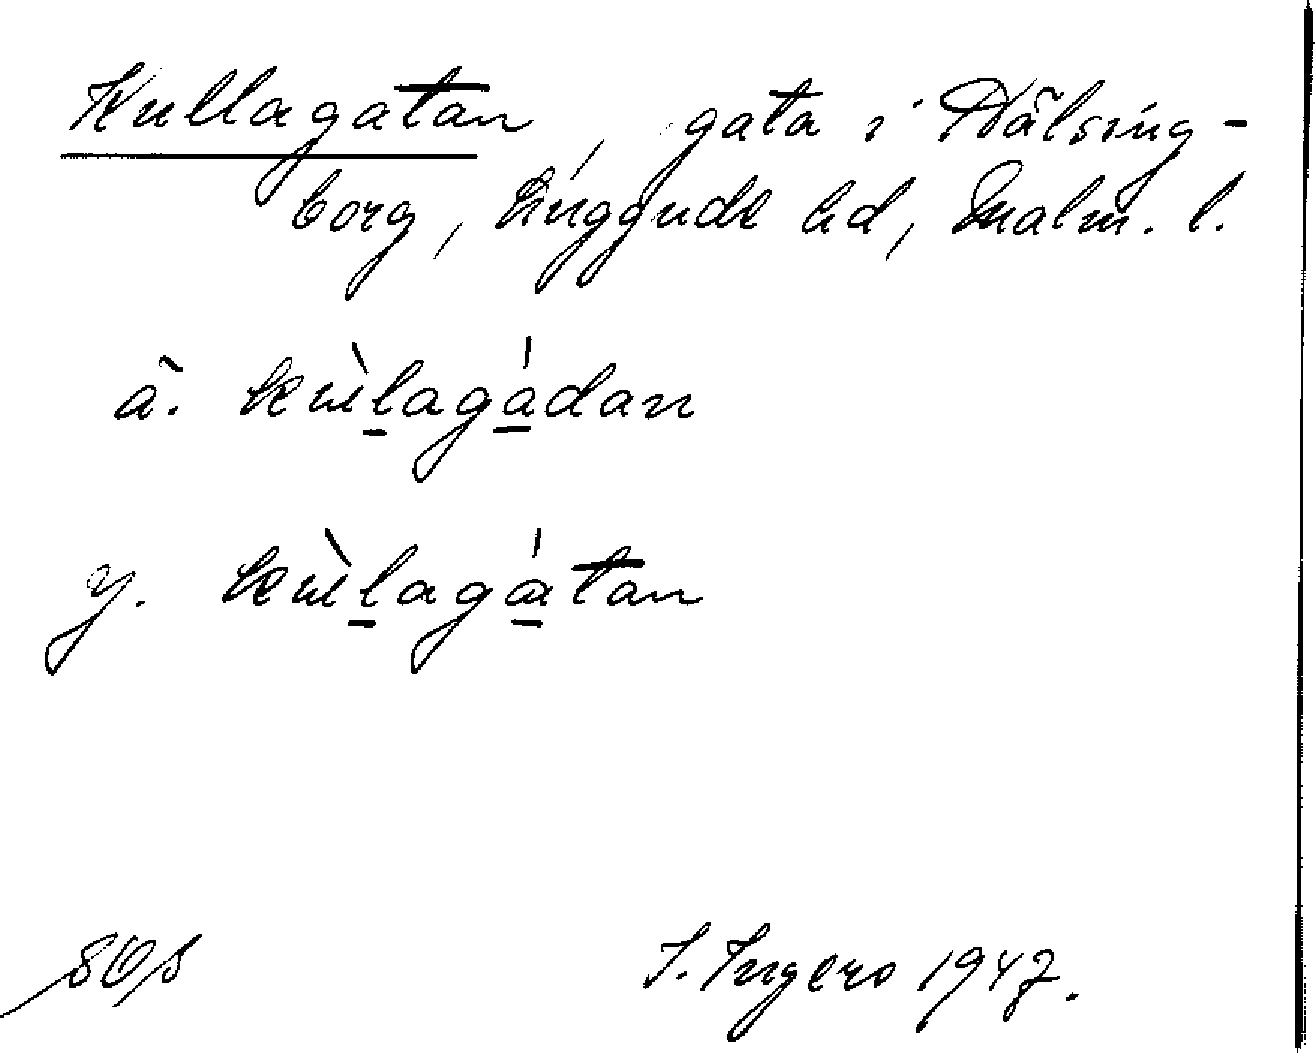 Kullagatan, gata i Hälsing-
borg, Luggude hd, Malm. l.
ä. kùlagádan
y. kùlagátan
I. Ingers 1947.